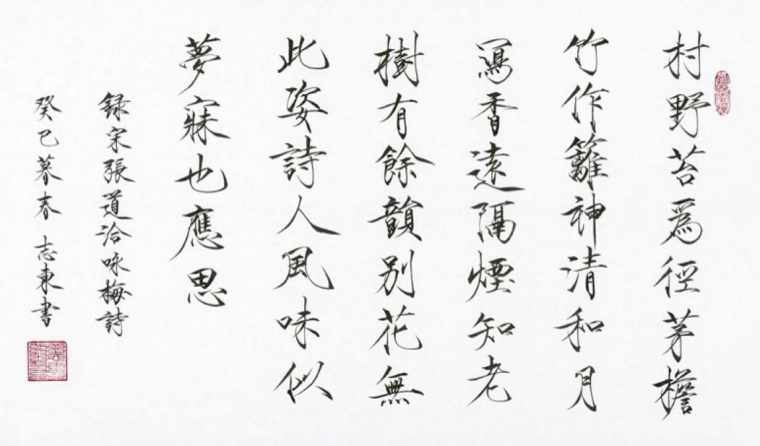 村野苔為徑茅檐
竹作籬神清和月
寫香遠隔煙知老
樹有餘韻別花無
此姿詩人風味似
夢寐也應思
録宋張道洽咏梅詩
癸巳暮春志東書